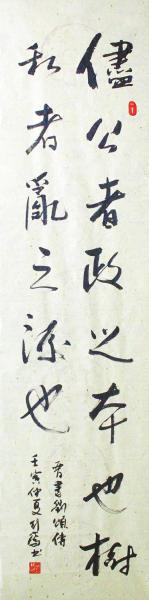 儘公者政之本也樹
私者亂之源也
晋書劉頌傳
壬寅仲夏